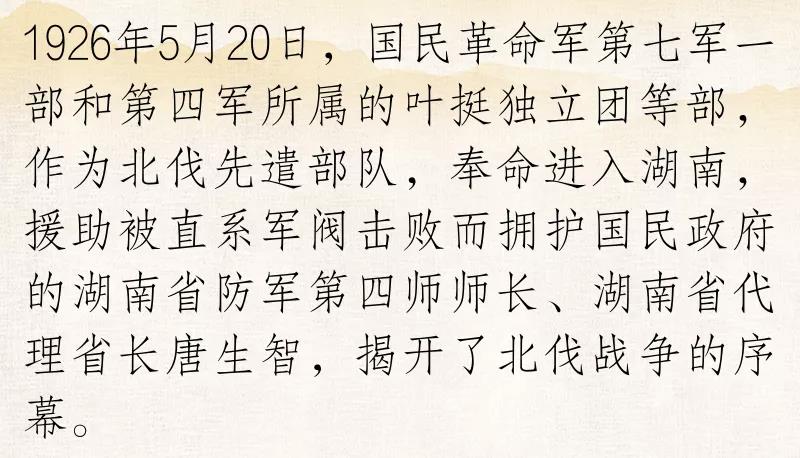 1926年5月20日，国民革命军第七军一
部和第四军所属的叶挺独立团等部，
作为北伐先遣部队，奉命进入湖南，
援助被直系军阀击败而拥护国民政府
的湖南省防军第四师师长、湖南省代
理省长唐生智，揭开了北伐战争的序
幕。